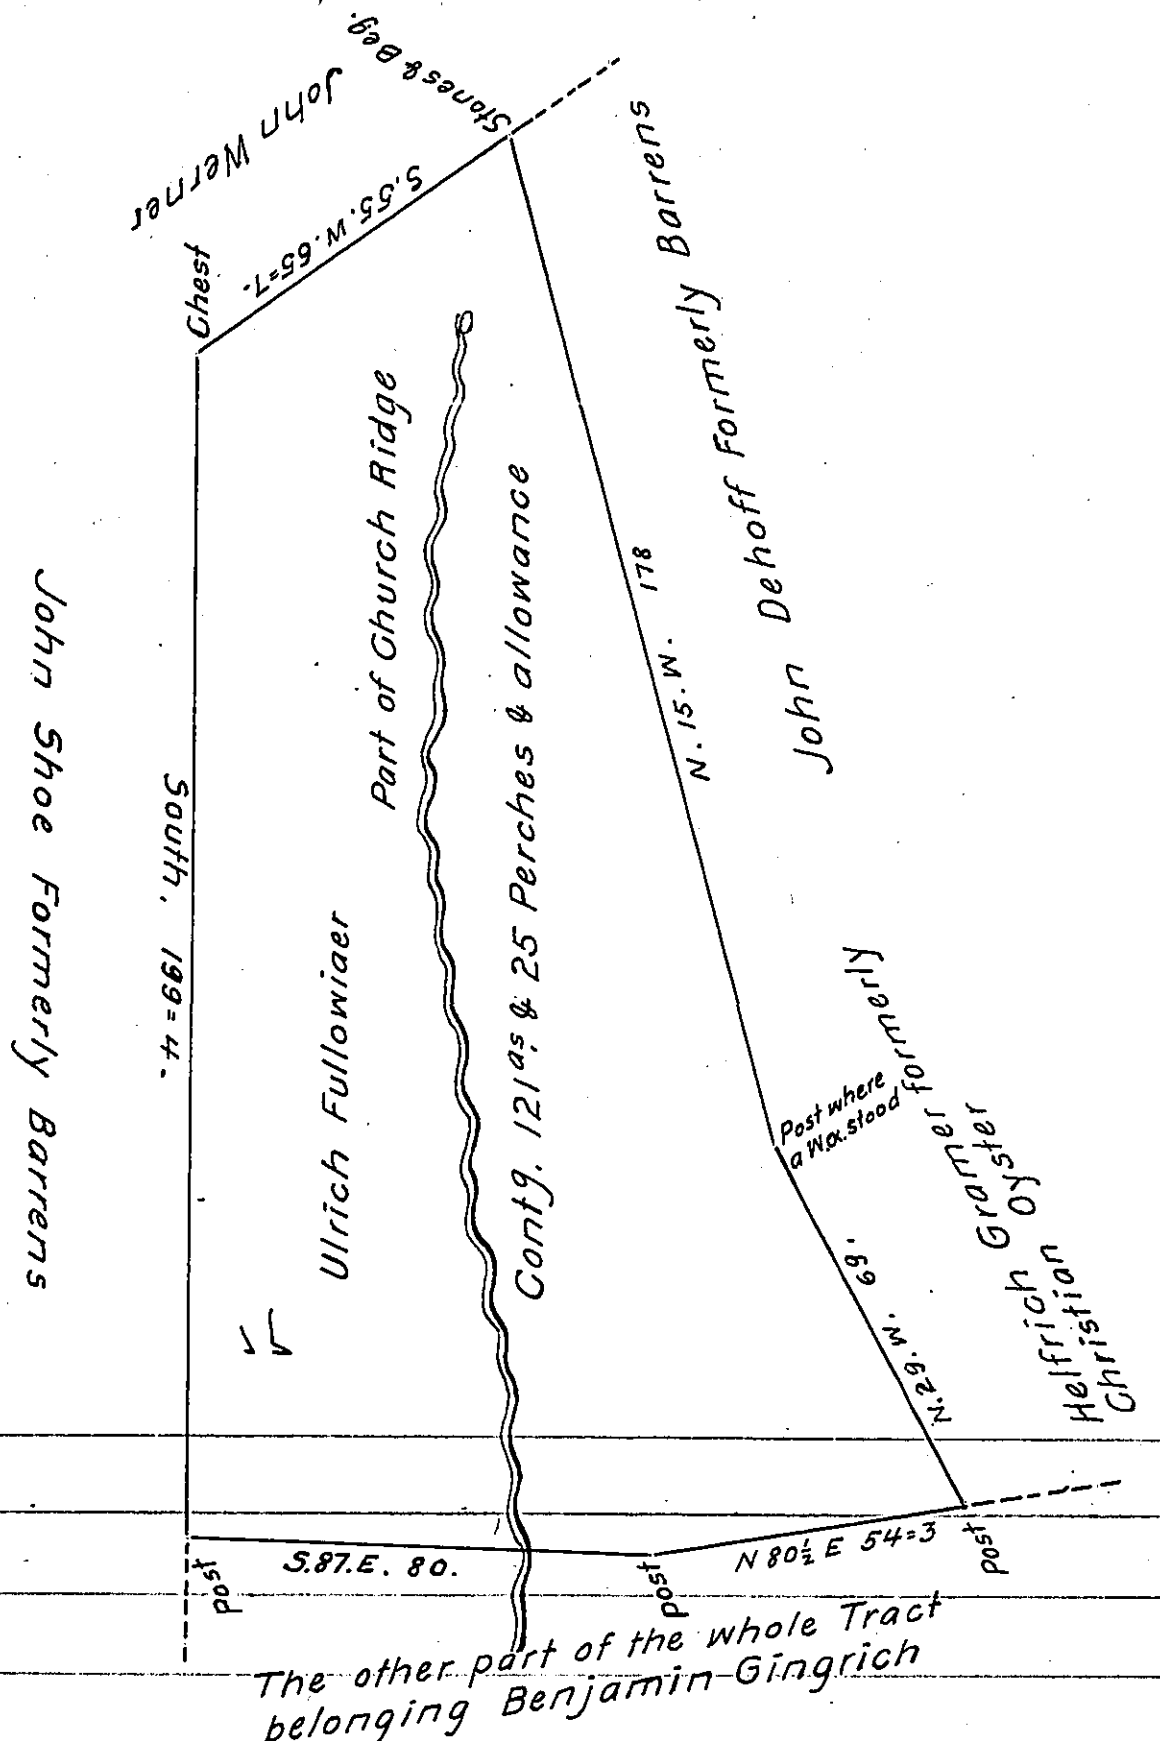 Stones & Beg.
John Werner
S.55.W.65=7.
Chest
John Dehoff Formerly Barrens
N. 15. W. 178
Part of Church Ridge
Contg. 121as. & 25 Perches & allowance
South. 199=4.
John Shoe Formerly Barrens
Ulrich Fullowiaer
Post where
a W.o. stood
Helfrich Gramer formerly
Christian Oyster
N. 29. W. 69.
post
S.87.E. 80.
post
N 80½ E 54=3
post
The other part of the whole Tract
belonging Benjamin Gingrich